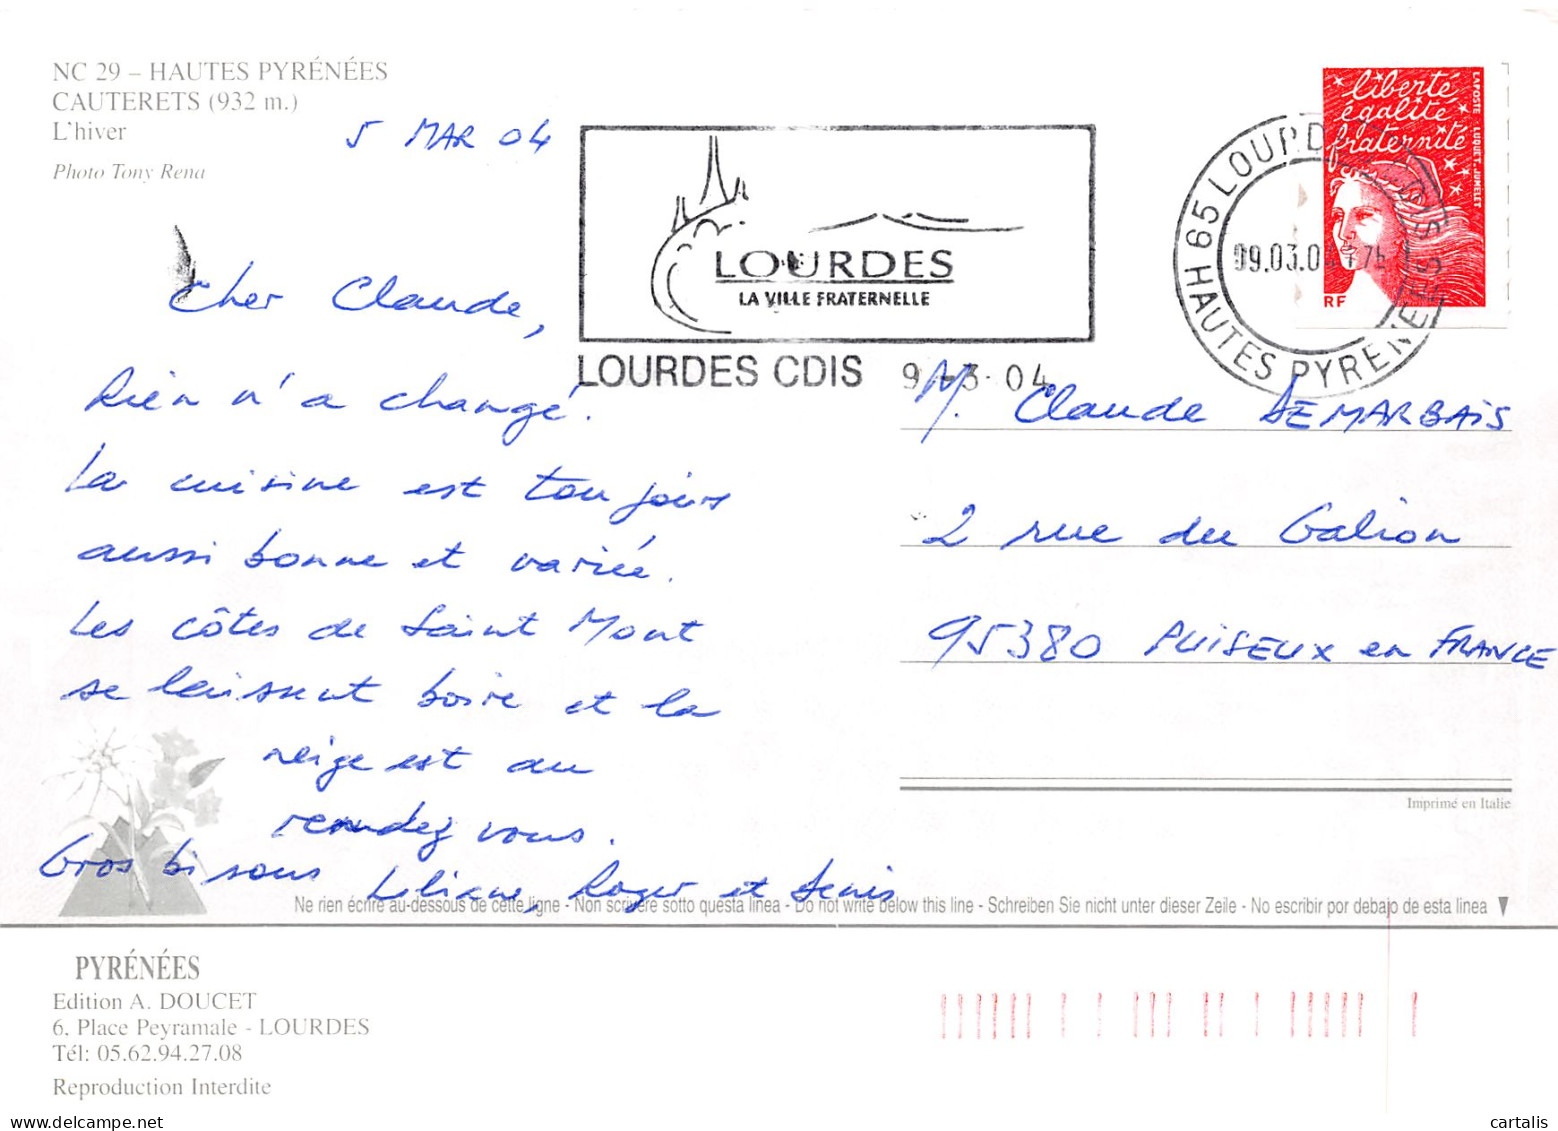 NC 29 – HAUTES PYRÉNÉES
CAUTERETS (932 m.)
L'hiver
Photo Tony Rena
5 MAR 04
Cher Claude,
Rien n'a changé.
La cuisine est toujours
aussi bonne et variée.
Les côtes de Saint Mont
se laissent boire et la
neige est au
rendez vous.
Gros bisous Liliane, Roger et Denis
LOURDES
LA VILLE FRATERNELLE
LOURDES CDIS 9-3-04
65 LOURDES
HAUTES PYRENEES
liberté
égalité
fraternité
LA POSTE LUQUET-JUMELET
RF
M. Claude DEMARBAIS
2 rue du Galion
95380 PUISEUX en FRANCE
Imprimé en Italie
Ne rien écrire au-dessous de cette ligne - Non scrivere sotto questa linea - Do not write below this line - Schreiben Sie nicht unter dieser Zeile - No escribir por debajo de esta linea
PYRÉNÉES
Edition A. DOUCET
6, Place Peyramale - LOURDES
Tél: 05.62.94.27.08
Reproduction Interdite
cartalis